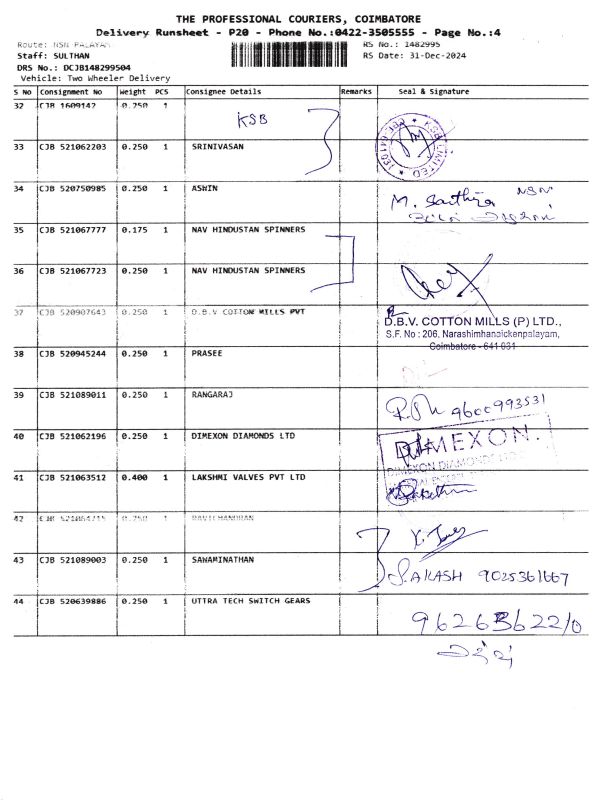 THE PROFESSIONAL COURIERS, COIMBATORE
Delivery Runsheet - P20 - Phone No.:0422-3505555 - Page No.:4
Route: NSN PALAYAM RS No.: 1482995
Staff: SULTHAN RS Date: 31-Dec-2024
DRS No.: DCJB148299504
Vehicle: Two Wheeler Delivery
S No Consignment No Weight PCS Consignee Details Remarks Seal & Signature
32 CJB 1609142 0.250 1
KSB
KSB LIMITED
33 CJB 521062203 0.250 1 SRINIVASAN
34 CJB 520750985 0.250 1 ASHIN
M. Sathiya NSN
35 CJB 521067777 0.175 1 NAV HINDUSTAN SPINNERS
36 CJB 521067723 0.250 1 NAV HINDUSTAN SPINNERS
37 CJB 520907643 0.250 1 D.B.V COTTON MILLS PVT
D.B.V. COTTON MILLS (P) LTD.,
S.F. No : 206, Narashimhanaickenpalayam,
Coimbatore - 641 031
38 CJB 520945244 0.250 1 PRASEE
39 CJB 521089011 0.250 1 RANGARAJ
9600993531
40 CJB 521062196 0.250 1 DIMEXON DIAMONDS LTD
DIMEXON.
DIMEXON DIAMONDS LTD
41 CJB 521063512 0.400 1 LAKSHMI VALVES PVT LTD
42 CJB 521064715 0.250 1 RAVICHANDRAN
43 CJB 521089003 0.250 1 SAWAMINATHAN
S. AKASH 9025361667
44 CJB 520639886 0.250 1 UTTRA TECH SWITCH GEARS
9626362210